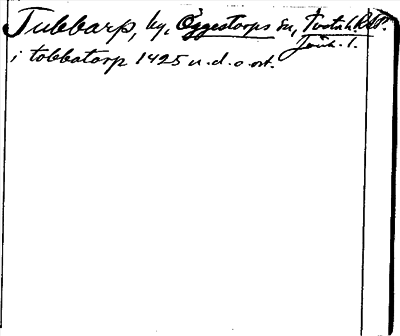 Tubbarp, by, Öggestorps sn, Tveta h.
Jönk. l.
i tobbatorp 1425 u.d.o ort.